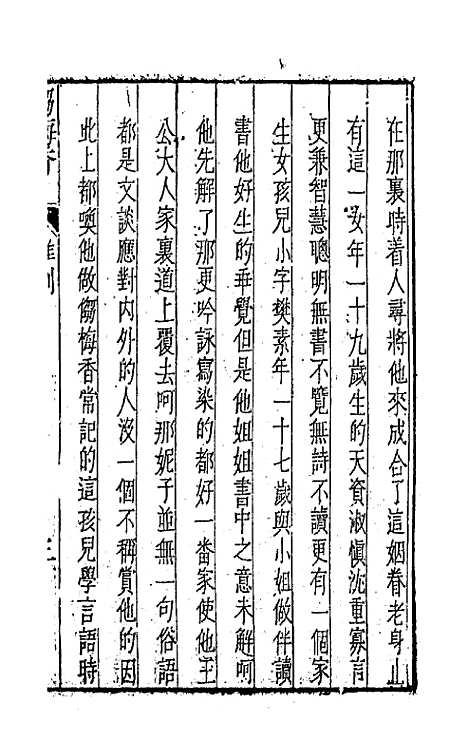 在那裏時着人尋將他來成合了這姻眷老身止
有這一女年一十九歲生的天資淑慎沈重寡言
更兼智慧聰明無書不覽無詩不讀更有一個家
生女孩兒小字樊素年一十七歲與小姐做伴讀
書他好生的乖覺但是他姐姐書中之意未解呵
他先解了那更吟詠寫染的都好一番家使他王
公大人家裏道上覆去呵那妮子並無一句俗語
都是文談應對內外的人沒一個不稱賞他的因
此上都喚他做㑳梅香常記的這孩兒學言語時
㑳梅香
雜劇
三